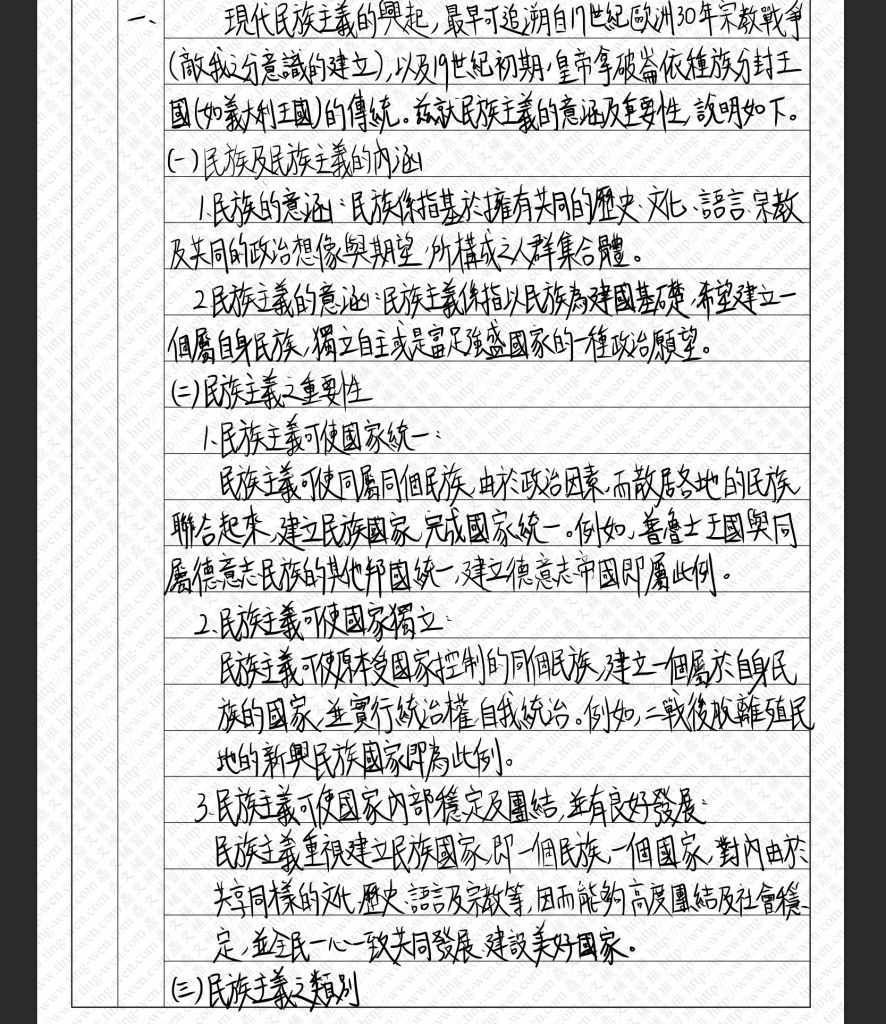 一、現代民族主義的興起，最早可追溯自17世紀歐洲30年宗教戰爭
(敵我之分意識的建立)，以及19世紀初期，皇帝拿破崙依種族分封王
國(如義大利王國)的傳統。茲就民族主義的意涵及重要性，說明如下。
(一)民族及民族主義的內涵
1.民族的意涵：民族係指基於擁有共同的歷史、文化、語言、宗教
及共同的政治想像與期望，所構成之人群集合體。
2.民族主義的意涵：民族主義係指以民族為建國基礎，希望建立一
個屬自身民族，獨立自主或是富足強盛國家的一種政治願望。
(二)民族主義之重要性
1.民族主義可使國家統一：
民族主義可使同屬同個民族，由於政治因素，而散居各地的民族
聯合起來，建立民族國家，完成國家統一。例如，普魯士王國與同
屬德意志民族的其他邦國統一，建立德意志帝國即屬此例。
2.民族主義可使國家獨立：
民族主義可使原本受國家控制的同個民族，建立一個屬於自身民
族的國家，並實行統治權，自我統治。例如，二戰後脫離殖民
地的新興民族國家即為此例。
3.民族主義可使國家內部穩定及團結，並有良好發展：
民族主義重視建立民族國家，即一個民族，一個國家，對內由於
共享同樣的文化、歷史、語言及宗教等，因而能夠高度團結及社會穩
定，並全民一心一致共同發展，建設美好國家。
(三)民族主義之類別